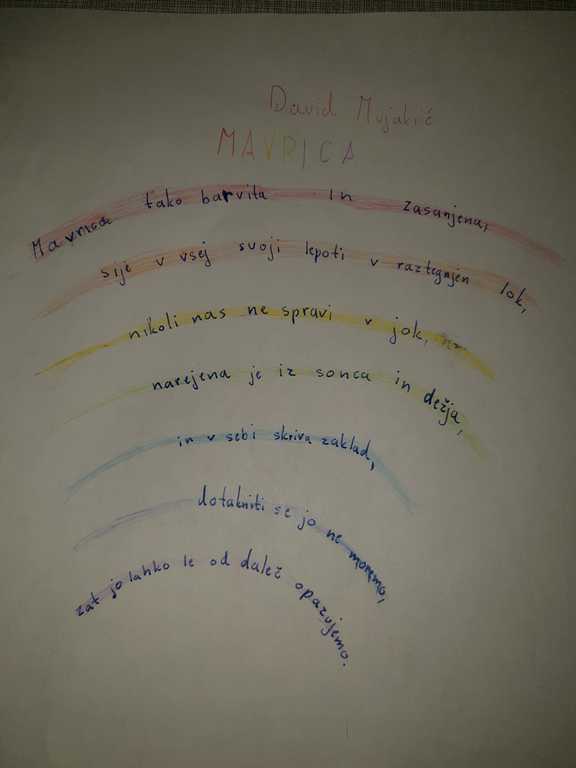 David Mujakić
MAVRICA
Mavrica tako barvita in zasanjena,
sije v vsej svoji lepoti v raztegnjen lok,
nikoli nas ne spravi v jok,
narejena je iz sonca in dežja,
in v sebi skriva zaklad,
dotakniti se jo ne moremo,
zat jo lahko le od daleč opazujemo.